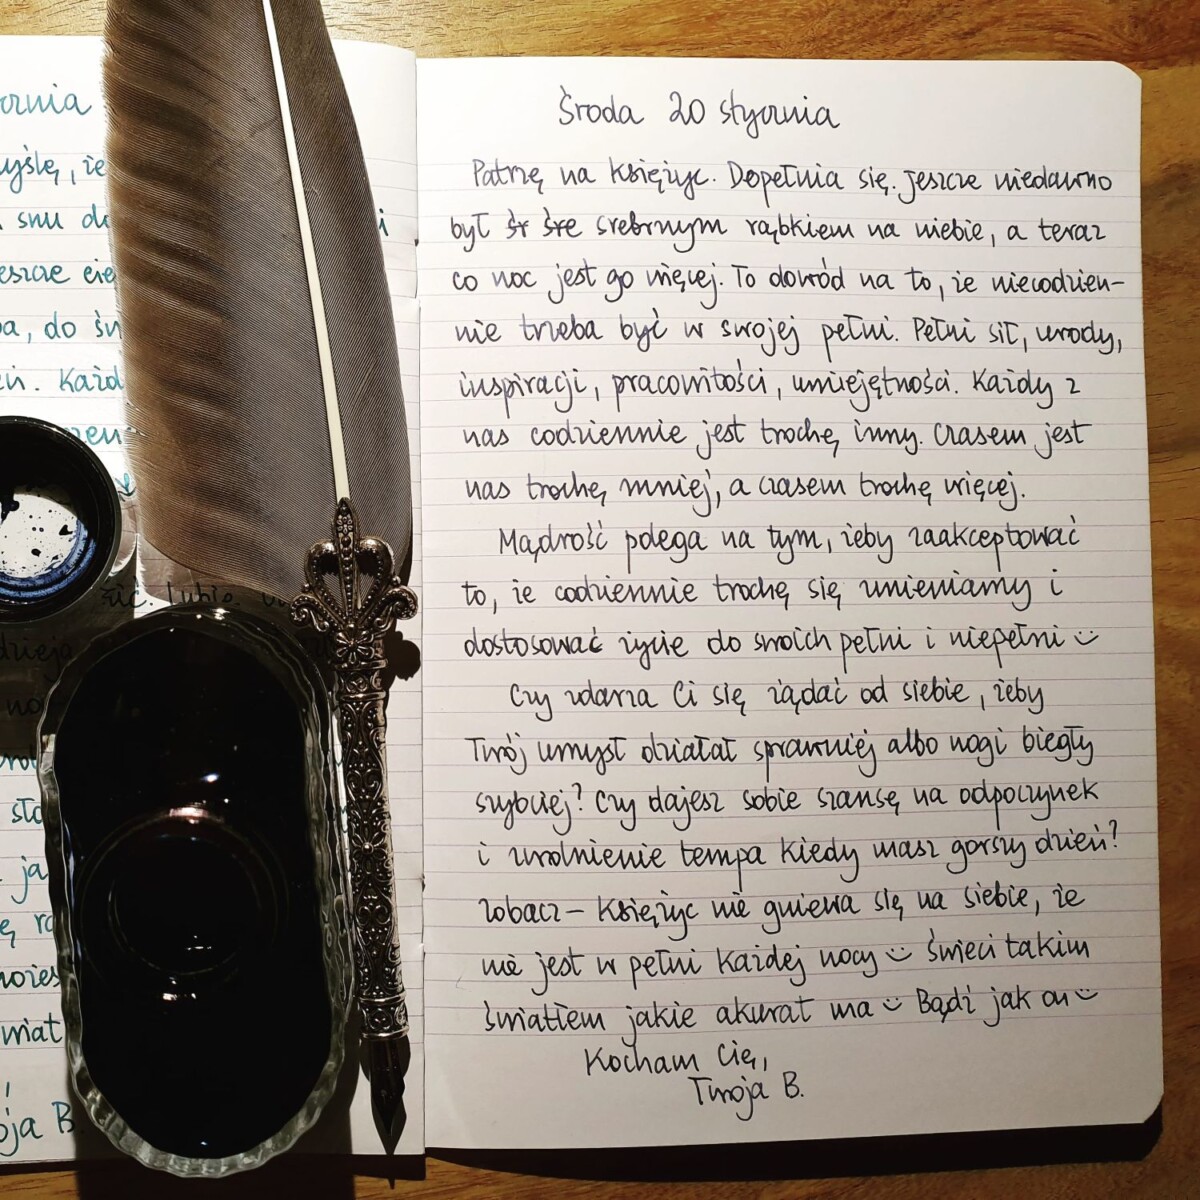 ornia
yślę, że
snu do
i
eszcze
a, do
Każd
zić. Lubię
dzieja
no
sło
ja
ę
świat
oja B.
Środa 20 stycznia
Patrzę na księżyc. Dopełnia się. Jeszcze niedawno
był śr śre srebrnym rąbkiem na niebie, a teraz
co noc jest go więcej. To dowód na to, że niecodzien-
nie trzeba być w swojej pełni. Pełni sił, urody,
inspiracji, pracowitości, umiejętności. Każdy z
nas codziennie jest trochę inny. Czasem jest
nas trochę mniej, a czasem trochę więcej.
Mądrość polega na tym, żeby zaakceptować
to, że codziennie trochę się zmieniamy i
dostosować życie do swoich pełni i niepełni
Czy zdarza Ci się żądać od siebie, żeby
Twój umysł działał sprawniej albo nogi biegły
szybciej? Czy dajesz sobie szansę na odpoczynek
i zwolnienie tempa kiedy masz gorszy dzień?
Zobacz – księżyc nie gniewa się na siebie, że
nie jest w pełni każdej nocy Świeci takim
światłem jakie akurat ma Bądź jak on
Kocham Cię,
Twoja B.